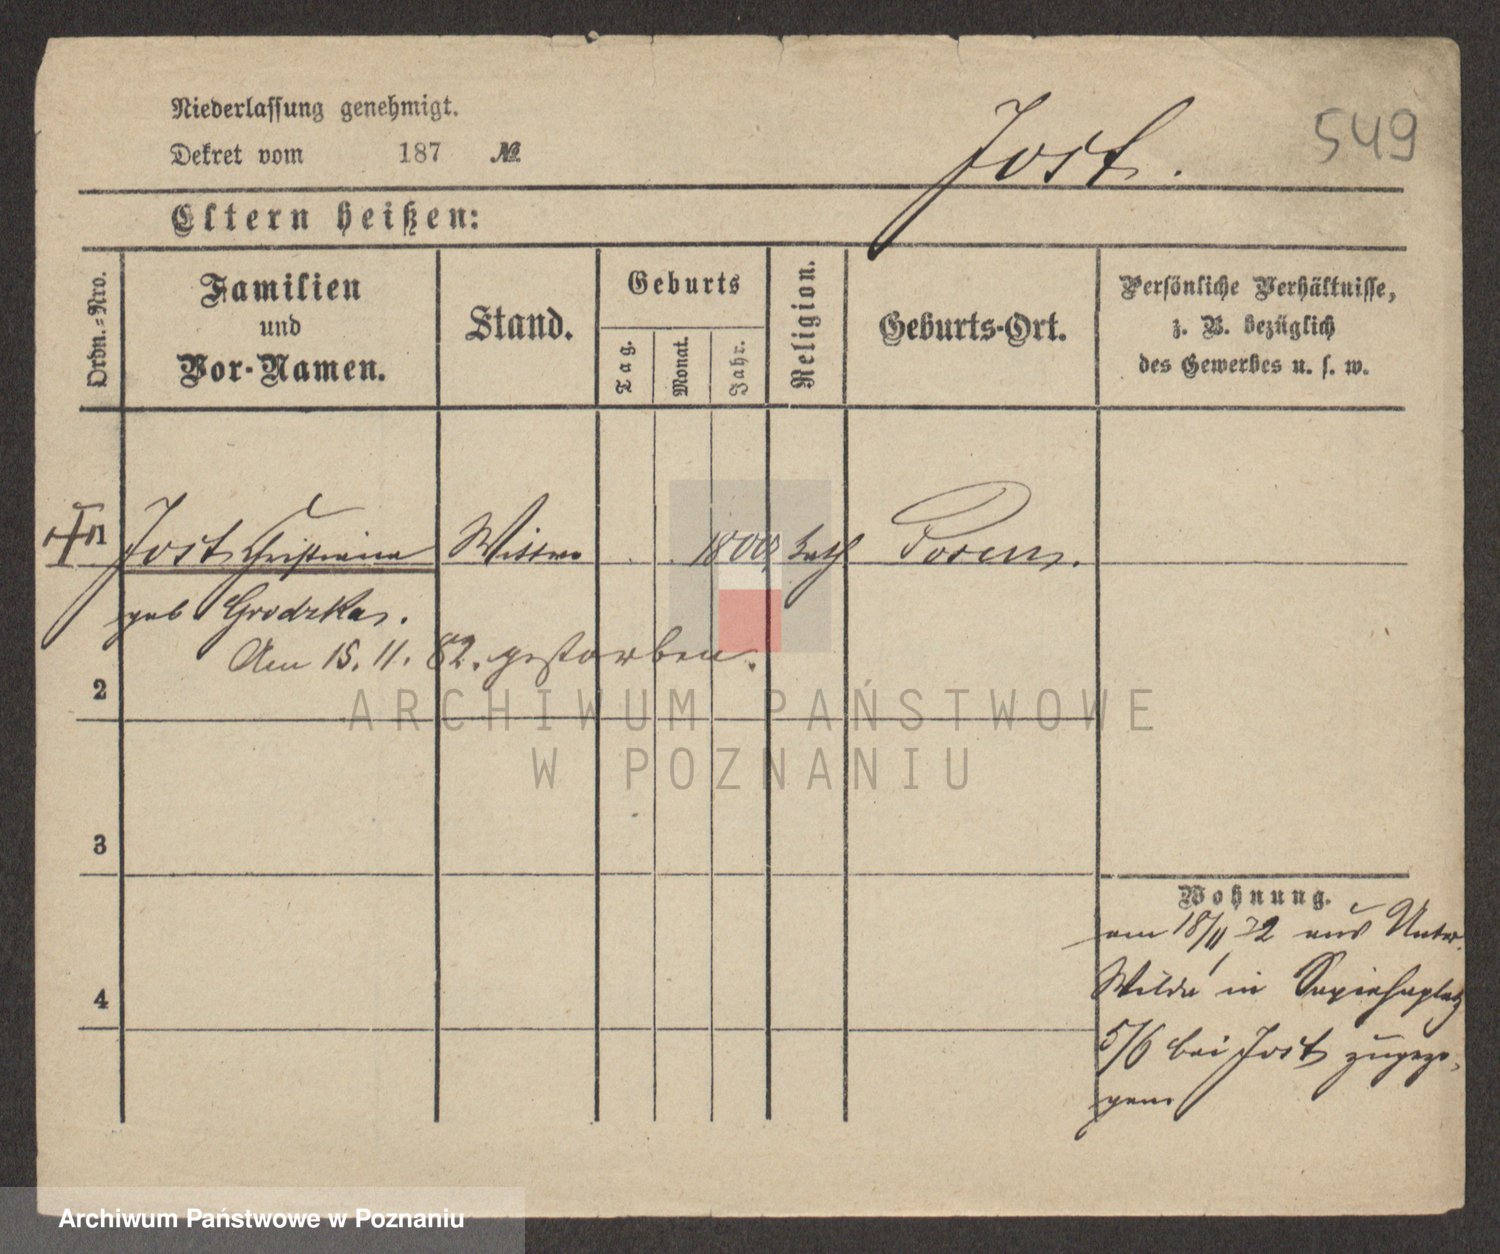 Niederlassung genehmigt.
Dekret vom 187 №
Jost.
549
Eltern heißen:
Ordn.-Nro.
Familien
und
Vor-Namen.
Stand.
Geburts
Tag.
Monat.
Jahr.
Religion.
Geburts-Ort.
Persönliche Verhältnisse,
z. B. bezüglich
des Gewerbes u. s. w.
1 Jost Christina Wittwe 1800 kath Posen.
geb Grodzka.
Am 15. 11. 82. gestorben.
2
3
4
Wohnung.
am 18/11 72 aus Unter
Wilda in Sapiehaplatz
5/6 bei Jost zugezo-
gen.
ARCHIWUM PAŃSTWOWE
W POZNANIU
Archiwum Państwowe w Poznaniu